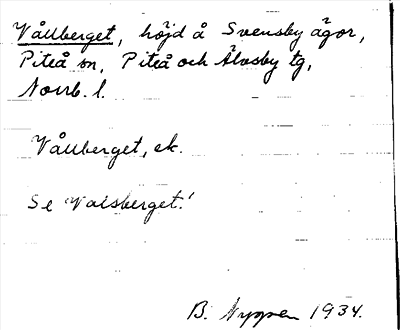 Vållberget, höjd å Svensby ägor,
Piteå sn, Piteå och Älvsby tg,
Norrb. l.
Vållberget, ek.
Se Vaisberget!
B. Nygren 1934.